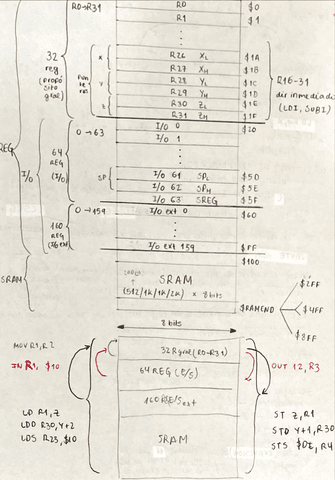 R0→R31
R0 $0
R1 $1
32
reg
(propó
sito
gral)
Pun
te
ros
X
R26 XL $1A
R27 XH $1B
Y
R28 YL $1C
R29 YH $1D
Z
R30 ZL $1E
R31 ZH $1F
R16-31
dir inmediado
(LDI, SUBI)
REG
I/O
0→63
I/O 0 $20
I/O 1
64
REG
(I/O)
SP
I/O 61 SPL $5D
I/O 62 SPH $5E
I/O 63 SREG $5F
0→159
I/O ext 0 $60
160
REG
I/O ext 159 $FF
$100
SRAM
SRAM
(512/1K/1K/2K) × 8bits
$RAMEND
$2FF
$4FF
$8FF
8 bits
MOV R1, R2
32 R gral (R0-R31)
IN R1, $10
64 REG (E/S)
OUT 12, R3
160 REG E/S ext
LD R1, Z
LDD R30, Y+2
LDS R23, $10
SRAM
ST Z, R1
STD Y+1, R30
STS $DE, R4